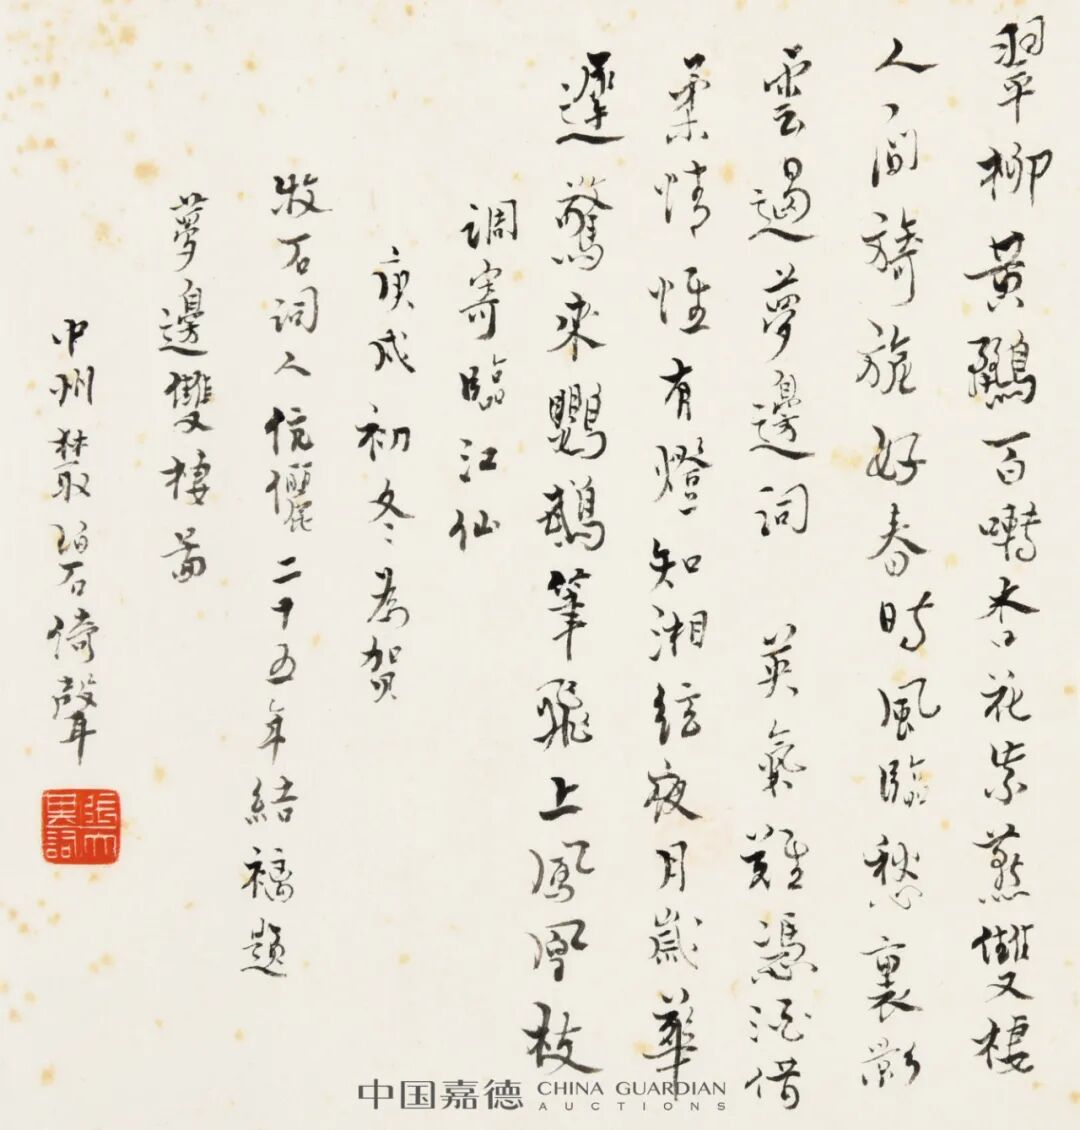 翠柳黄鸝百囀杏花紫燕雙棲
人間旖旎好春時風臨愁裏影
雲過夢邊詞　英氣難憑酒借
柔情惟有燈知湘絃夜月歲華
遲驚來鸚鵡筆飛上鳳凰枝
調寄臨江仙
庚戌初冬為賀
牧石詞人伉儷二十五年結褵題
夢邊雙棲啚
中州叢碧倚聲
中国嘉德 CHINA GUARDIAN AUCTIONS